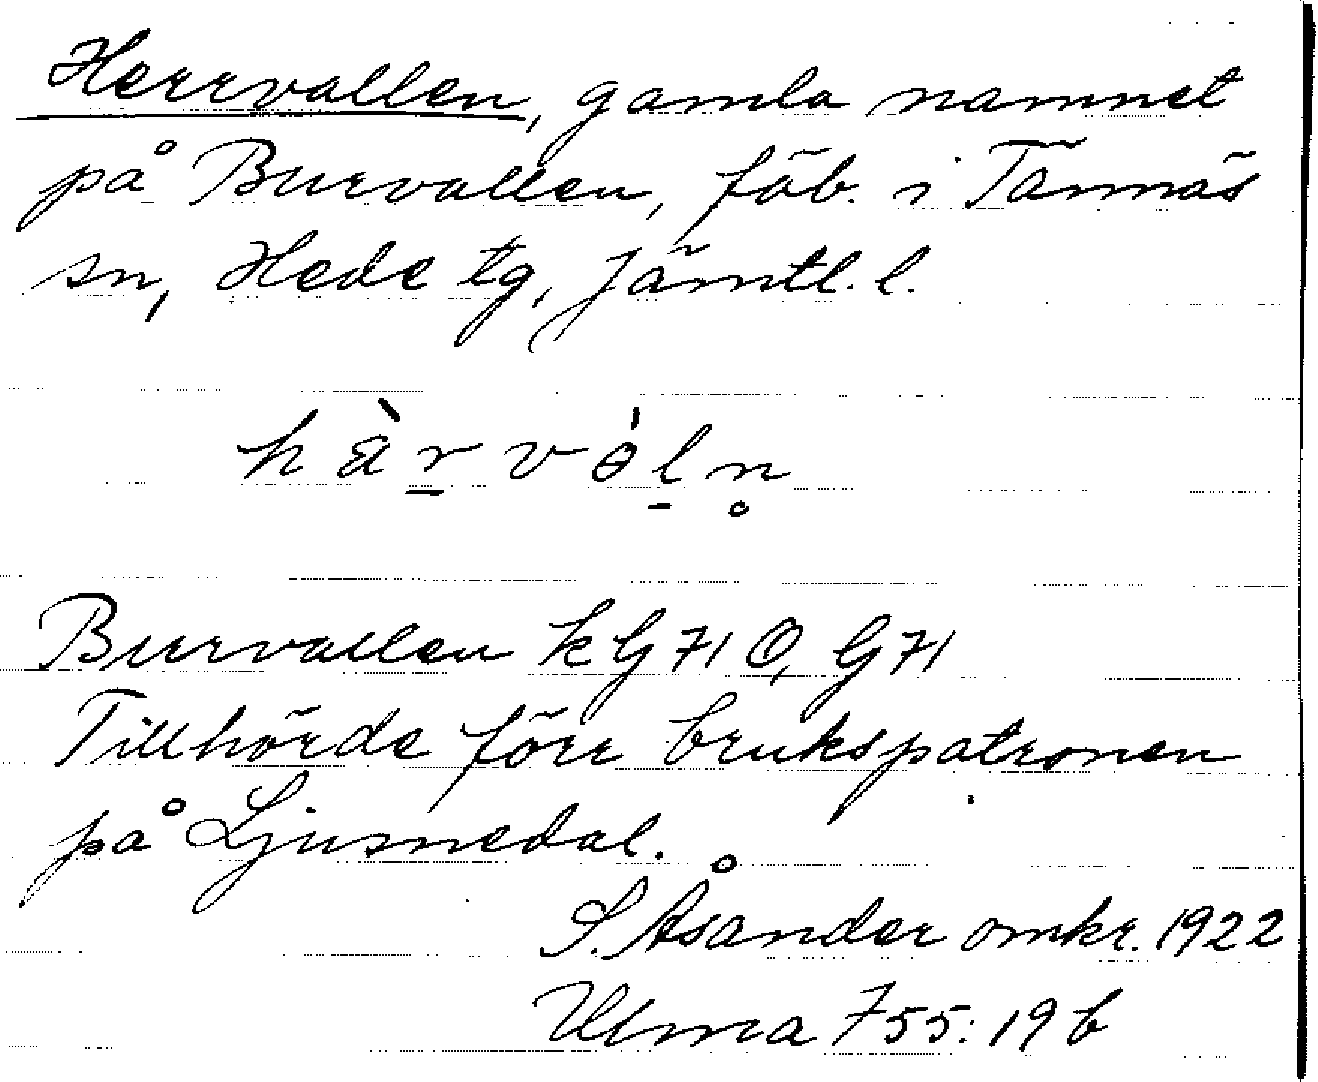 Herrvallen, gamla namnet
på Burvallen, fäb. i Tännäs
sn, Hede tg, Jämtl. l.
hä̀r̠vəl̠n̥
Burvallen k G 71 O, G 71
Tillhörde förr brukspatronen
på Ljusnedal.
S. Åsander omkr. 1922
Ulma 755:19 b